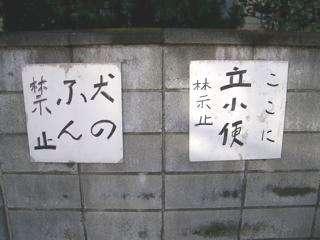 犬の
ふん
禁止
ここに
立小便
禁止